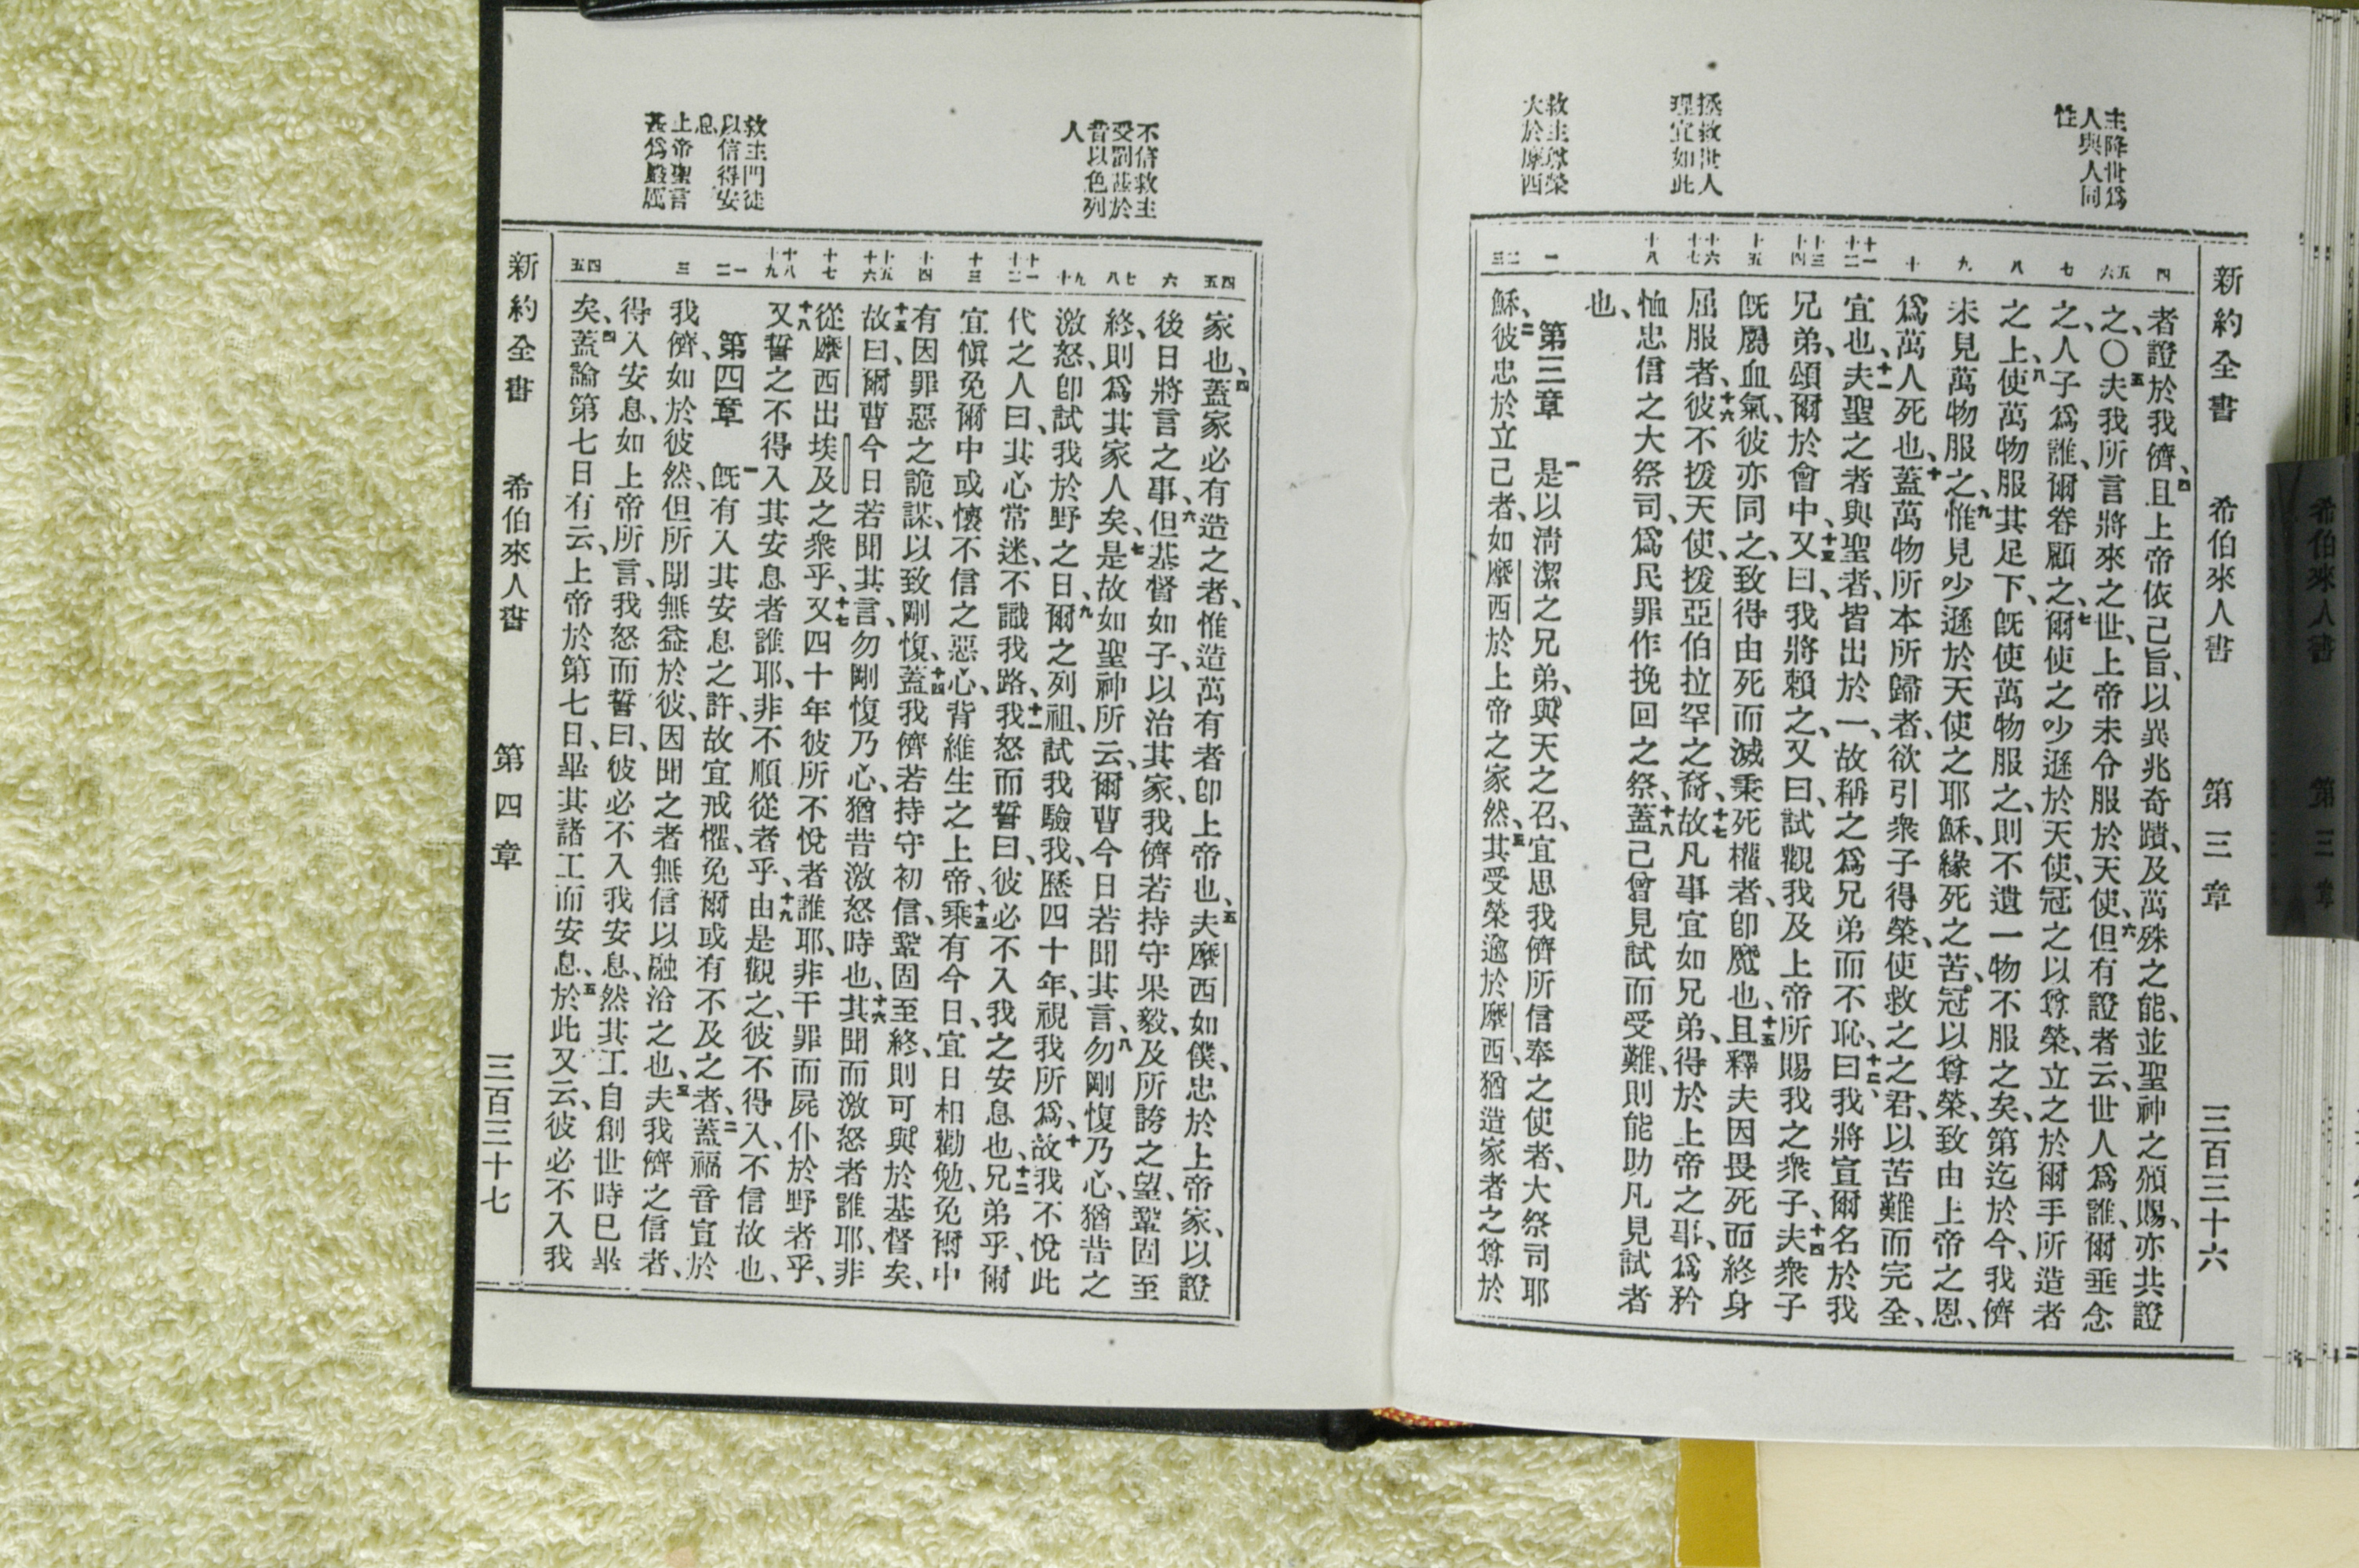 新約全書 希伯來人書 第三章 三百三十六
主降世爲
人與人同
性
拯救世人
理宜如此
救主尊榮
大於摩西
四
五六
七
八
九
十
十一十二
十三十四
十五
十六十七
十八
一
二三
者證於我儕、四且上帝依己旨、以異兆奇蹟、及萬殊之能、並聖神之頒賜、亦共證
之、〇五夫我所言將來之世、上帝未令服於天使、六但有證者云、世人爲誰、爾垂念
之、人子爲誰、爾眷顧之、七爾使之少遜於天使、冠之以尊榮、立之於爾手所造者
之上、八使萬物服其足下、旣使萬物服之、則不遺一物不服之矣、第迄於今、我儕
未見萬物服之、九惟見少遜於天使之耶穌、緣死之苦、冠以尊榮、致由上帝之恩、
爲萬人死也、十蓋萬物所本所歸者、欲引衆子得榮、使救之之君、以苦難而完全、
宜也、十一夫聖之者與聖者、皆出於一、故稱之爲兄弟而不恥、十二曰、我將宣爾名於我
兄弟、頌爾於會中、十三又曰、我將賴之、又曰、試觀我及上帝所賜我之衆子、十四夫衆子
旣屬血氣、彼亦同之、致得由死而滅秉死權者、卽魔也、十五且釋夫因畏死而終身
屈服者、十六彼不援天使、援亞伯拉罕之裔、十七故凡事宜如兄弟、得於上帝之事、爲矜
恤忠信之大祭司、爲民罪作挽回之祭、十八蓋己曾見試而受難、則能助凡見試者
也、
第三章 一是以淸潔之兄弟、與天之召、宜思我儕所信奉之使者、大祭司耶
穌、二彼忠於立己者、如摩西於上帝之家然、三其受榮逾於摩西、猶造家者之尊於
不信救主
受罰甚於
昔以色列
人
救主門徒
以信得安
息
上帝聖言
甚爲嚴厲
四五
六
七八
九十
十一十二
十三
十四
十五十六
十七
十八十九
一二
三
四五
家也、四蓋家必有造之者、惟造萬有者卽上帝也、五夫摩西如僕、忠於上帝家、以證
後日將言之事、六但基督如子、以治其家、我儕若持守果毅、及所誇之望、鞏固至
終、則爲其家人矣、七是故如聖神所云、爾曹今日若聞其言、八勿剛愎乃心、猶昔之
激怒、卽試我於野之日、九爾之列祖、試我驗我、歷四十年、視我所爲、十故我不悅此
代之人曰、其心常迷、不識我路、十一我怒而誓曰、彼必不入我之安息也、十二兄弟乎、爾
宜愼免爾中或懷不信之惡心、背維生之上帝、十三乘有今日、宜日相勸勉、免爾中
有因罪惡之詭謀、以致剛愎、十四蓋我儕若持守初信、鞏固至終、則可與於基督矣、
十五故曰、爾曹今日若聞其言、勿剛愎乃心、猶昔激怒時也、十六其聞而激怒者誰耶、非
從摩西出埃及之衆乎、十七又四十年彼所不悅者誰耶、非干罪而屍仆於野者乎、
十八又誓之不得入其安息者誰耶、非不順從者乎、十九由是觀之、彼不得入、不信故也、
第四章 一旣有入其安息之許、故宜戒懼、免爾或有不及之者、二蓋福音宣於
我儕、如於彼然、但所聞無益於彼、因聞之者無信以融洽之也、三夫我儕之信者、
得入安息、如上帝所言、我怒而誓曰、彼必不入我安息、然其工自創世時已畢
矣、四蓋論第七日有云、上帝於第七日、畢其諸工而安息、五於此又云、彼必不入我
新約全書 希伯來人書 第四章 三百三十七
希伯來人書 第三章